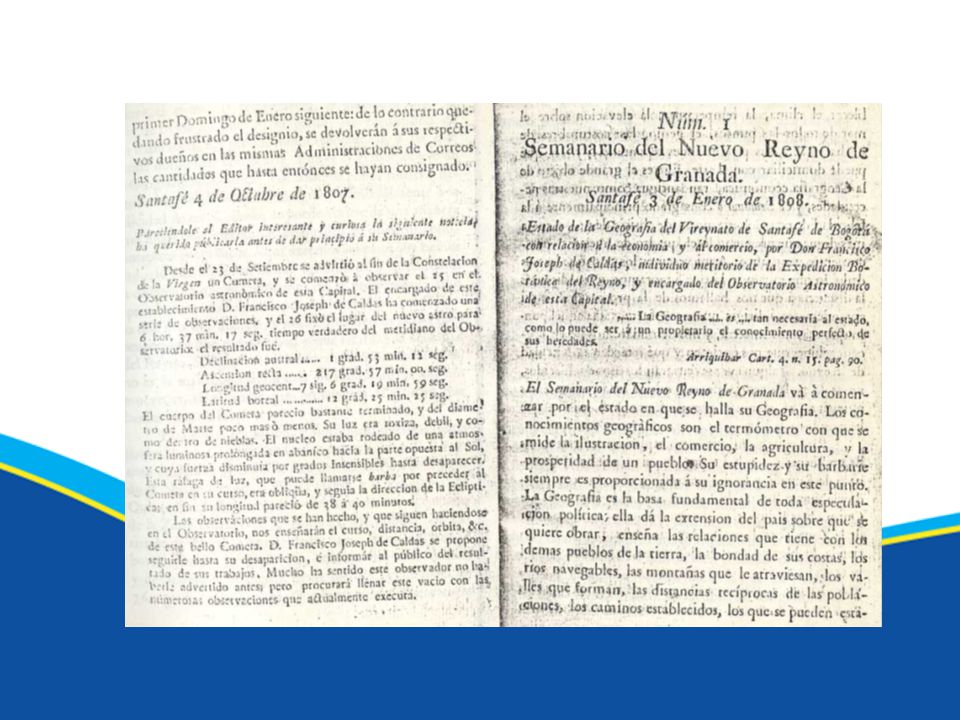 primer Domingo de Enero siguiente: de lo contrario que-
dando frustrado el designio, se devolverán á sus respecti-
vos dueños en las mismas Administraciones de Correos
las cantidades que hasta entónces se hayan consignado.
Santafé 4 de Octubre de 1807.
Pareciendole al Editor interesante y curiosa la siguiente noticia,
ha querido publicarla antes de dar principio á su Semanario.
Desde el 23 de Setiembre se advirtió al fin de la Constelacion
de la Virgen un Cometa, y se comenzó á observar el 25 en el
Observatorio astronómico de esta Capital. El encargado de este
establecimiento D. Francisco Joseph de Caldas ha comenzado una
serie de observaciones, y el 26 fixó el lugar del nuevo astro para
6 hor. 37 min. 17 seg. tiempo verdadero del meridiano del Ob-
servatorio: el resultado fué.
Declinacion austral.... 1 grad. 53 min. 12 seg.
Ascension recta ...... 217 grad. 57 min. 00 seg.
Longitud geocent...7 sig. 6 grad. 19 min. 59 seg.
Latitud boreal ............ 12 grád. 25 min. 25 seg.
El cuerpo del Cometa parecio bastante terminado, y del diame-
tro de Marte poco mas ò menos. Su luz era roxiza, debil, y co-
mo dentro de nieblas. El nucleo estaba rodeado de una atmos-
fera luminosa prolongada en abanico hacia la parte opuesta al Sol,
y cuya fuerza disminuia por grados insensibles hasta desaparecer.
Esta ráfaga de luz, que puede llamarse barba por preceder al
Cometa en su curso, era obliqüa, y seguia la direccion de la Eclipti-
ca: en fin su longitud pareció de 38 á 40 minutos.
Las observaciones que se han hecho, y que siguen haciendose
en el Observatorio, nos enseñarán el curso, distancia, orbita, &c.
de este bello Cometa. D. Francisco Joseph de Caldas se propone
seguirle hasta su desaparicion, é informár al público del resul-
tado de sus trabajos. Mucho ha sentido este observador no ha-
berle advertido antes; pero procurará llenar este vacio con las
numerosas observaciones que actualmente executa.
Núm. 1
Semanario del Nuevo Reyno de
Granada.
Santafé 3 de Enero de 1808.
Estado de la Geografía del Vireynato de Santafé de Bogotá
con relacion á la economía y al comercio, por Don Francisco
Joseph de Caldas, individuo meritorio de la Expedicion Bo-
tánica del Reyno, y encargado del Observatorio Astronómico
de esta Capital.
..... La Geografía .... es .... tan necesaria al estado,
como lo puede ser á un propietario el conocimiento perfecto de
sus heredades.
Arriquibar Cart. 4. n. 15. pag. 90.
El Semanario del Nuevo Reyno de Granada va à comen-
zar por el estado en que se halla su Geografía. Los co-
nocimientos geográficos son el termómetro con que se
mide la ilustracion, el comercio, la agricultura, y la
prosperidad de un pueblo. Su estupidez y su barbarie
siempre es proporcionada á su ignorancia en este punto.
La Geografía es la basa fundamental de toda especula-
cion política; ella dá la extension del pais sobre que se
quiere obrar, enseña las relaciones que tiene con los
demas pueblos de la tierra, la bondad de sus costas, los
rios navegables, las montañas que le atraviesan, los va-
lles que forman, las distancias recíprocas de las pobla-
ciones, los caminos establecidos, los que se pueden está-